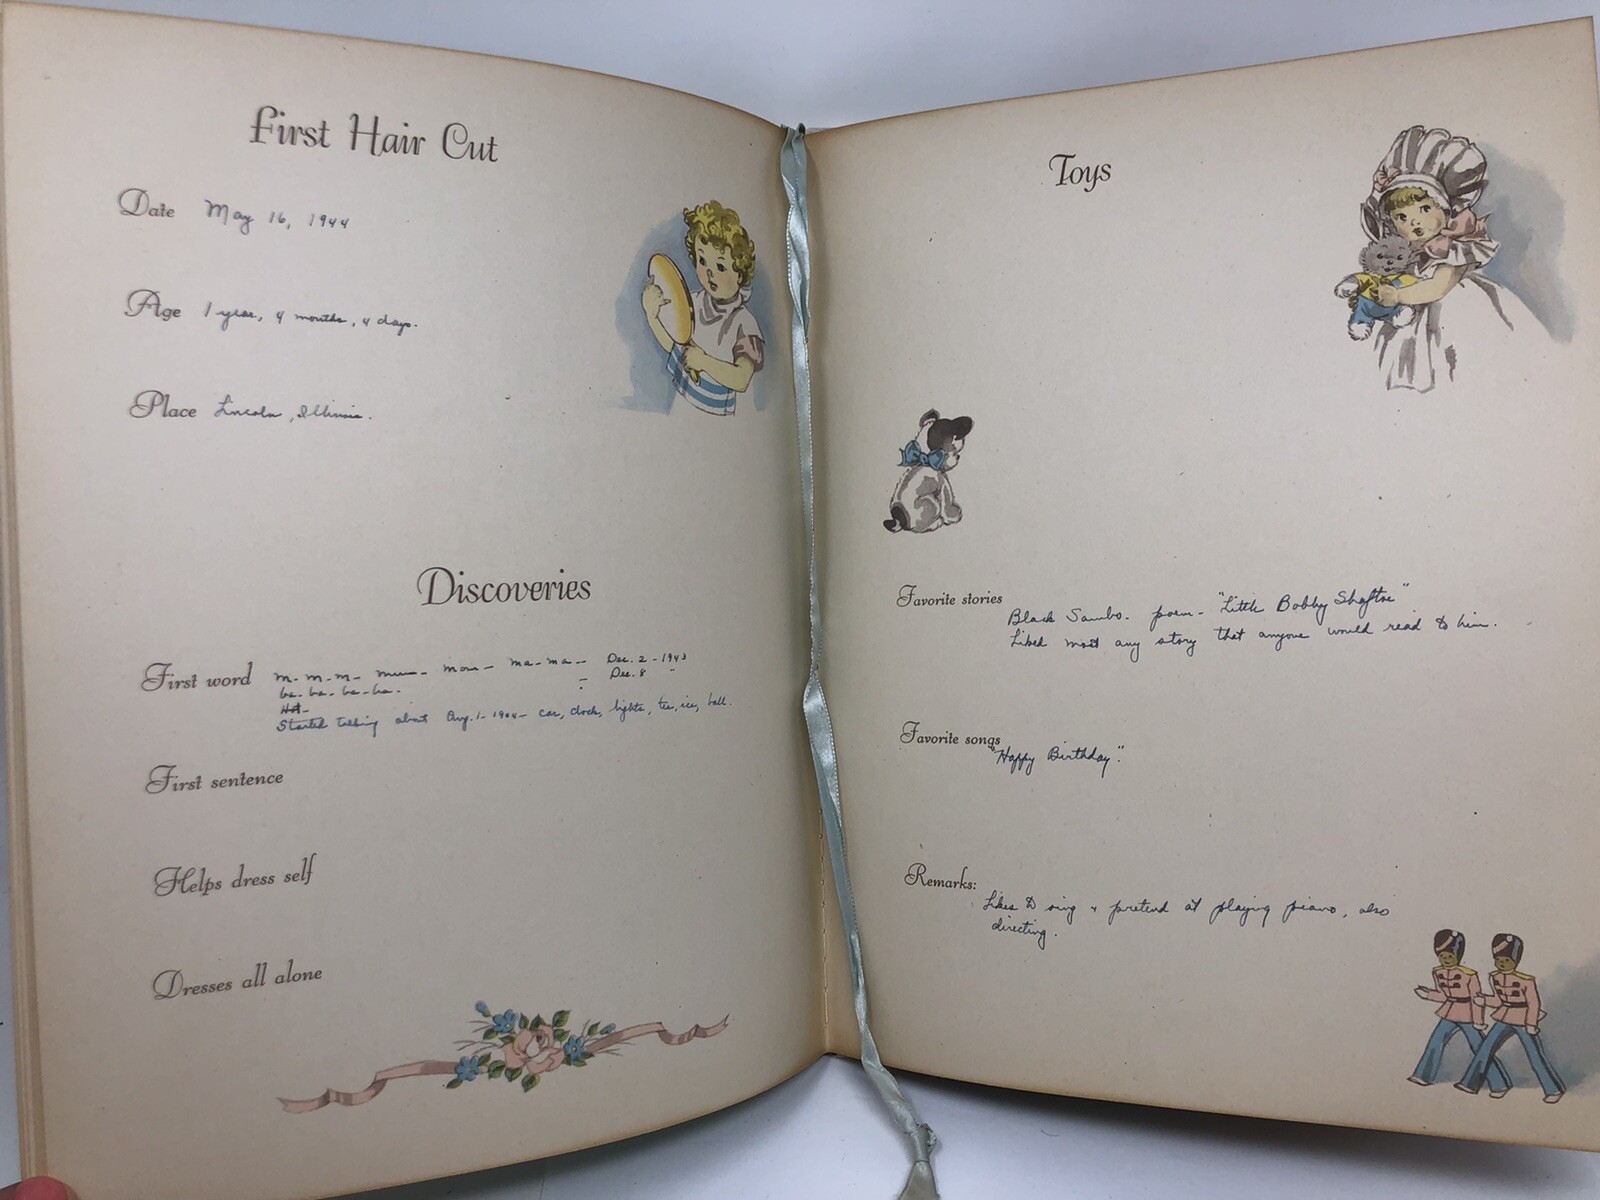 First Hair Cut
Date May 16, 1944
Age 1 year, 4 months, 4 days.
Place Lincoln, Illinois.
Discoveries
First word m-m-m- mum- mom- ma-ma- Dec. 2 - 1943
ba-ba-ba-ba. - Dec. 8 "
Hot-
Started talking about Aug. 1 - 1944 - car, clock, lights, tea, ice, ball.
First sentence
Helps dress self
Dresses all alone
Toys
Favorite stories Black Sambo. poem - "Little Bobby Shaftoe"
Liked most any story that anyone would read to him.
Favorite songs "Happy Birthday."
Remarks: Likes to sing & pretend at playing piano, also
directing.